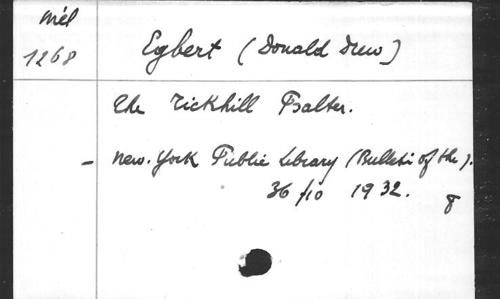 Mél
1268
Egbert (Donald Drew)
The Tickhill Psalter.
- New-York Public Library (Bulletin of the).
36/10 1932.
8